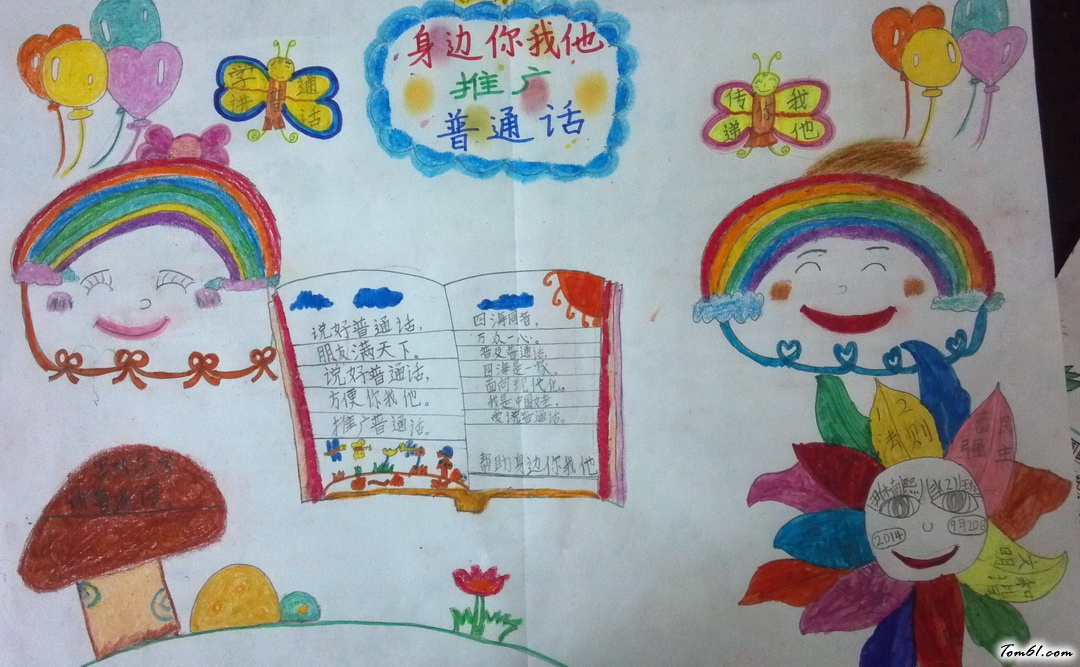 身边你我他
推广
普通话
学 普 通
讲 话
传 你 我
递 他
说好普通话，
朋友满天下。
说好普通话，
方便你我他。
推广普通话。
四海同音，
万众一心。
普及普通话，
四海是一家。
面向现代化。
我是中国娃，
爱说普通话。
帮助身边你我他
法则
富强
民主
文明
和谐
2014
9月20日
Tom61.com